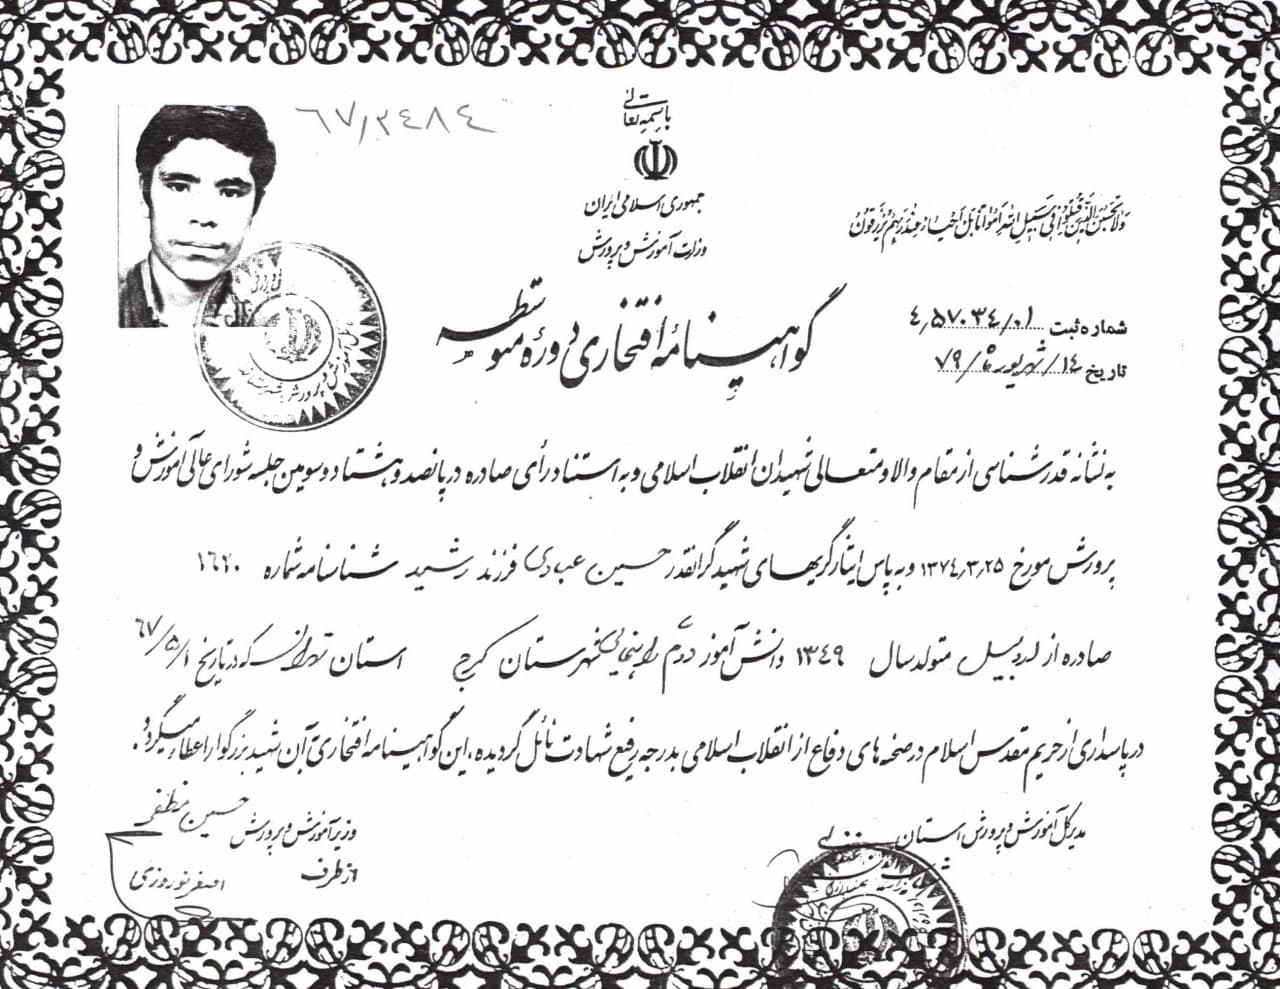 باسمه تعالی
٦٧/٢٤٨٤
جمهوری اسلامی ایران
وزارت آموزش و پرورش
وَلا تَحْسَبَنَّ الَّذینَ قُتِلُوا فی سَبیلِ اللهِ اَمْواتاً بَلْ اَحْیاءٌ عِنْدَ رَبِّهِمْ یُرْزَقُونَ
گواهینامهٔ افتخاری دورهٔ متوسطه
شماره ثبت ۴٫۵۷۰۳۴/۰۱
تاریخ ۱۴/شهریور/۷۹
به نشانه قدرشناسی از مقام والا و متعالی شهیدان انقلاب اسلامی و به استناد رأی صادره در پانصد و هشتاد و سومین جلسه شورای عالی آموزش و
پرورش مورخ ۱۳۷۴٫۳٫۲۵ و به پاس ایثارگریهای شهید گرانقدر حسین عبادی فرزند رشید شناسنامه شماره ۱۶۲۰
صادره از اردبیل متولد سال ۱۳۴۹ دانش آموز دوم راهنمایی شهرستان کرج استان تهران که در تاریخ ۶۷/۵/۱
در پاسداری از حریم مقدس اسلام در صحنه های دفاع از انقلاب اسلامی بدرجه رفیع شهادت نائل گردیده، این گواهینامه افتخاری به آن شهید بزرگوار اعطاء میگردد.
مدیرکل آموزش و پرورش استان
حسین مظفر
وزیر آموزش و پرورش
از طرف
اصغر نوروزی